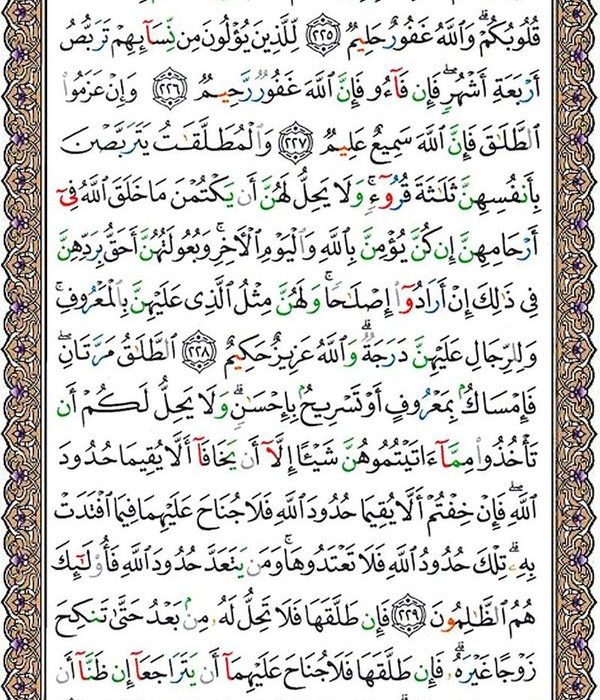 قُلُوبُكُمْ ۗ وَاللَّهُ غَفُورٌ حَلِيمٌ ﴿٢٢٥﴾ لِّلَّذِينَ يُؤْلُونَ مِن نِّسَآئِهِمْ تَرَبُّصُ
أَرْبَعَةِ أَشْهُرٍ ۖ فَإِن فَآءُو فَإِنَّ اللَّهَ غَفُورٌ رَّحِيمٌ ﴿٢٢٦﴾ وَإِنْ عَزَمُوا
الطَّلَٰقَ فَإِنَّ اللَّهَ سَمِيعٌ عَلِيمٌ ﴿٢٢٧﴾ وَالْمُطَلَّقَٰتُ يَتَرَبَّصْنَ
بِأَنفُسِهِنَّ ثَلَٰثَةَ قُرُوٓءٍ ۚ وَلَا يَحِلُّ لَهُنَّ أَن يَكْتُمْنَ مَا خَلَقَ اللَّهُ فِىٓ
أَرْحَامِهِنَّ إِن كُنَّ يُؤْمِنَّ بِاللَّهِ وَالْيَوْمِ الْأَخِرِ ۚ وَبُعُولَتُهُنَّ أَحَقُّ بِرَدِّهِنَّ
فِى ذَٰلِكَ إِنْ أَرَادُوٓا إِصْلَٰحًا ۚ وَلَهُنَّ مِثْلُ الَّذِى عَلَيْهِنَّ بِالْمَعْرُوفِ ۚ
وَلِلرِّجَالِ عَلَيْهِنَّ دَرَجَةٌ ۗ وَاللَّهُ عَزِيزٌ حَكِيمٌ ﴿٢٢٨﴾ الطَّلَٰقُ مَرَّتَانِ ۖ
فَإِمْسَاكٌ بِمَعْرُوفٍ أَوْ تَسْرِيحٌ بِإِحْسَٰنٍ ۗ وَلَا يَحِلُّ لَكُمْ أَن
تَأْخُذُوا مِمَّآ ءَاتَيْتُمُوهُنَّ شَيْـًٔا إِلَّآ أَن يَخَافَآ أَلَّا يُقِيمَا حُدُودَ
اللَّهِ ۖ فَإِنْ خِفْتُمْ أَلَّا يُقِيمَا حُدُودَ اللَّهِ فَلَا جُنَاحَ عَلَيْهِمَا فِيمَا افْتَدَتْ
بِهِ ۗ تِلْكَ حُدُودُ اللَّهِ فَلَا تَعْتَدُوهَا ۚ وَمَن يَتَعَدَّ حُدُودَ اللَّهِ فَأُولَٰٓئِكَ
هُمُ الظَّٰلِمُونَ ﴿٢٢٩﴾ فَإِن طَلَّقَهَا فَلَا تَحِلُّ لَهُ مِنۢ بَعْدُ حَتَّىٰ تَنكِحَ
زَوْجًا غَيْرَهُ ۗ فَإِن طَلَّقَهَا فَلَا جُنَاحَ عَلَيْهِمَآ أَن يَتَرَاجَعَآ إِن ظَنَّآ أَن